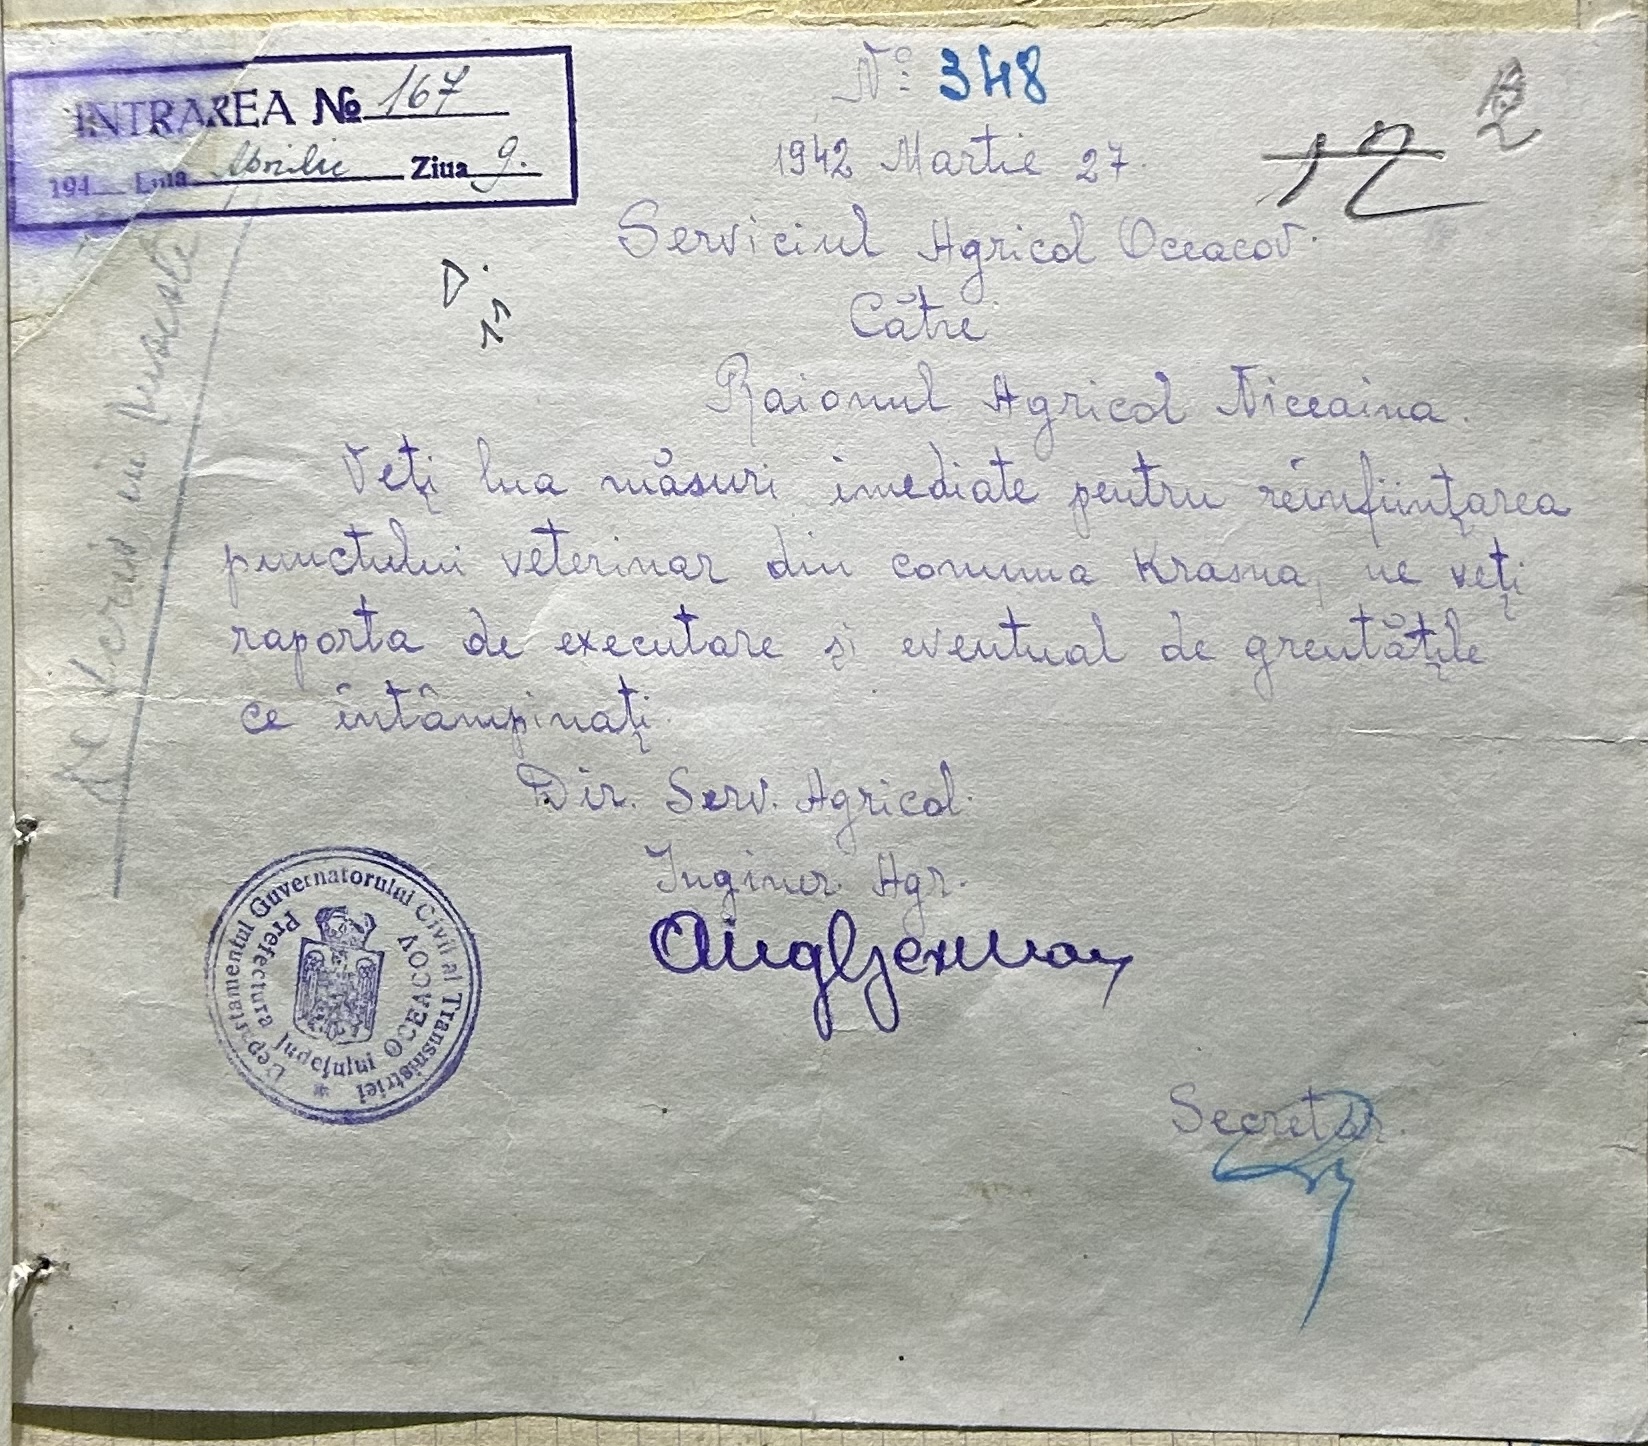 INTRAREA № 167
194__ Luna Aprilie Ziua 9.
№: 348
12
2
1942 Martie 27
Serviciul Agricol Oceacov.
Către
Raionul Agricol Niceaina.
Veți lua măsuri imediate pentru reînființarea
punctului veterinar din comuna Krasna, ne veți
raporta de executare și eventual de greutățile
ce întâmpinați.
Dir. Serv. Agricol.
Inginer Agr.
Departamentul Guvernatorului Civil al Transnistriei
Prefectura Județului OCEACOV
Secretar.